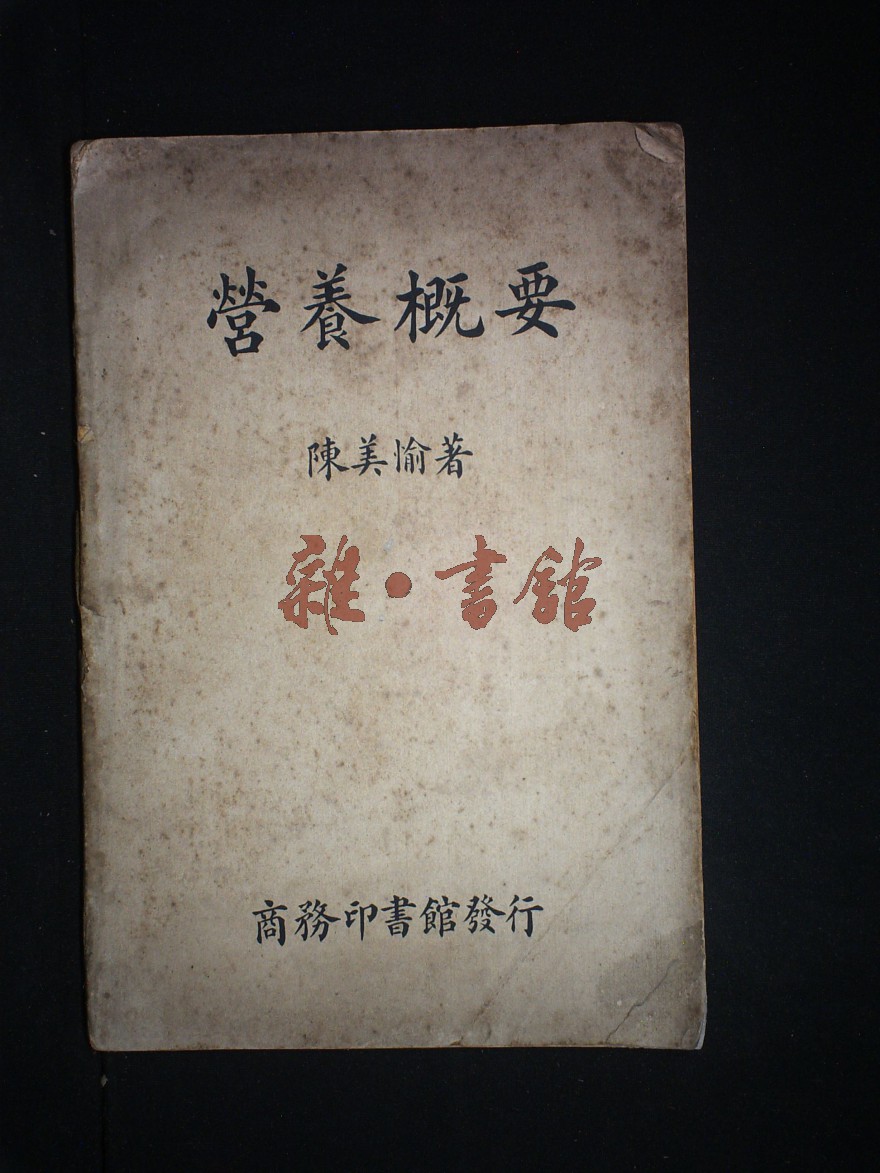 營養概要
陳美愉著
雜·書館
商務印書館發行